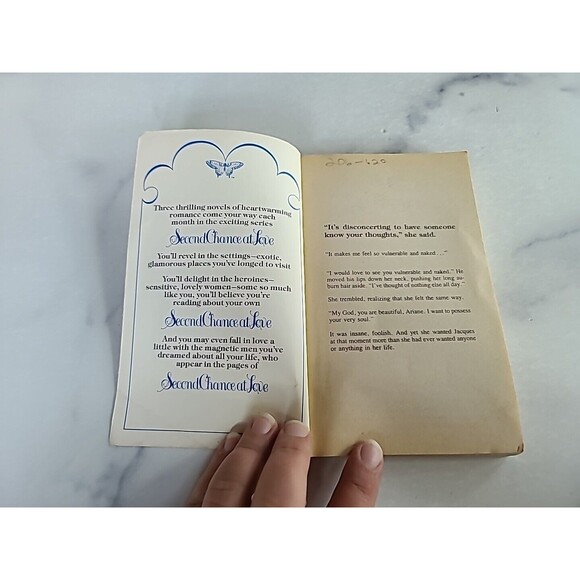 Three thrilling novels of heartwarming
romance come your way each
month in the exciting series
Second Chance at Love
You'll revel in the settings—exotic,
glamorous places you've longed to visit
You'll delight in the heroines—
sensitive, lovely women—some so much
like you, you'll believe you're
reading about your own
Second Chance at Love
And you may even fall in love a
little with the magnetic men you've
dreamed about all your life, who
appear in the pages of
Second Chance at Love
"It's disconcerting to have someone
know your thoughts," she said.
"It makes me feel so vulnerable and naked . . ."
"I would love to see you vulnerable and naked." He
moved his lips down her neck, pushing her long sun-
burn hair aside. "I've thought of nothing else all day."
She trembled, realizing that she felt the same way.
"My God, you are beautiful, Ariane. I want to possess
your very soul."
It was insane, foolish. And yet she wanted Jacques
at that moment more than she had ever wanted anyone
or anything in her life.